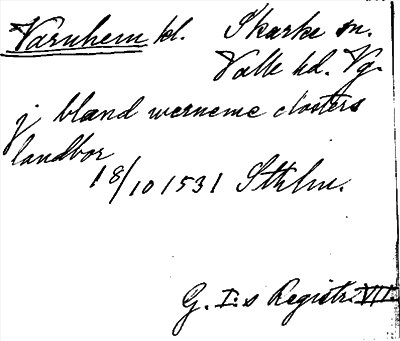 Varnhem kl. Skarke sn.
Valle hd. Vg.
j bland werneme closters
landbor
18/10 1531 Sthlm.
G. I:s Registr. VII.